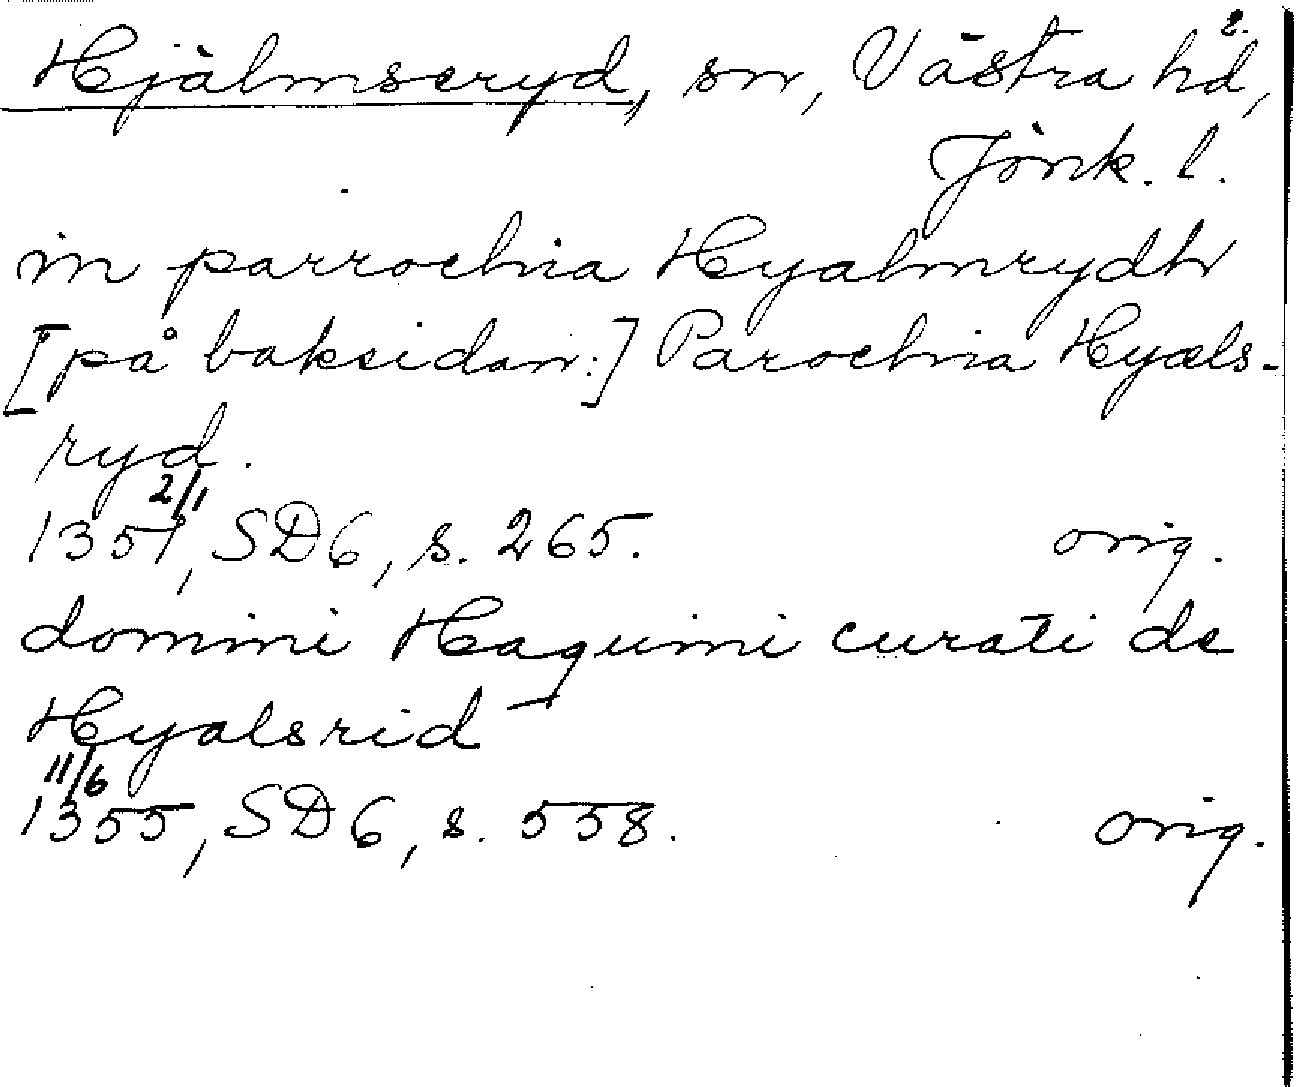 Hjälmseryd, sn, Västra hd,
2.
Jönk. l.
in parrochia Hyalmrydh
[på baksidan:] Parochia Hyæls-
ryd.
2/1
1351, SD6, s. 265. orig.
domini Haquini curati de
Hyalsrid
11/6
1355, SD6, s. 558. orig.